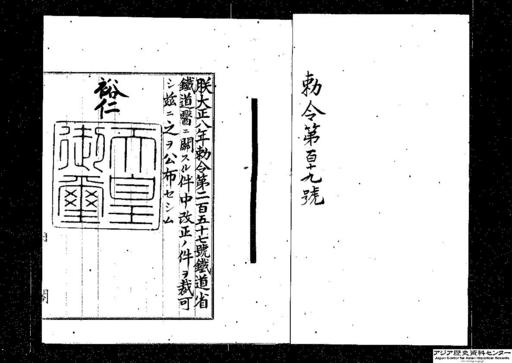 勅令第百十九號
朕大正八年勅令第二百五十七號鐵道省
鐵道醫ニ關スル件中改正ノ件ヲ裁可
シ茲ニ之ヲ公布セシム
裕仁
天皇
御璽
アジア歴史資料センター
Japan Center for Asian Historical Records